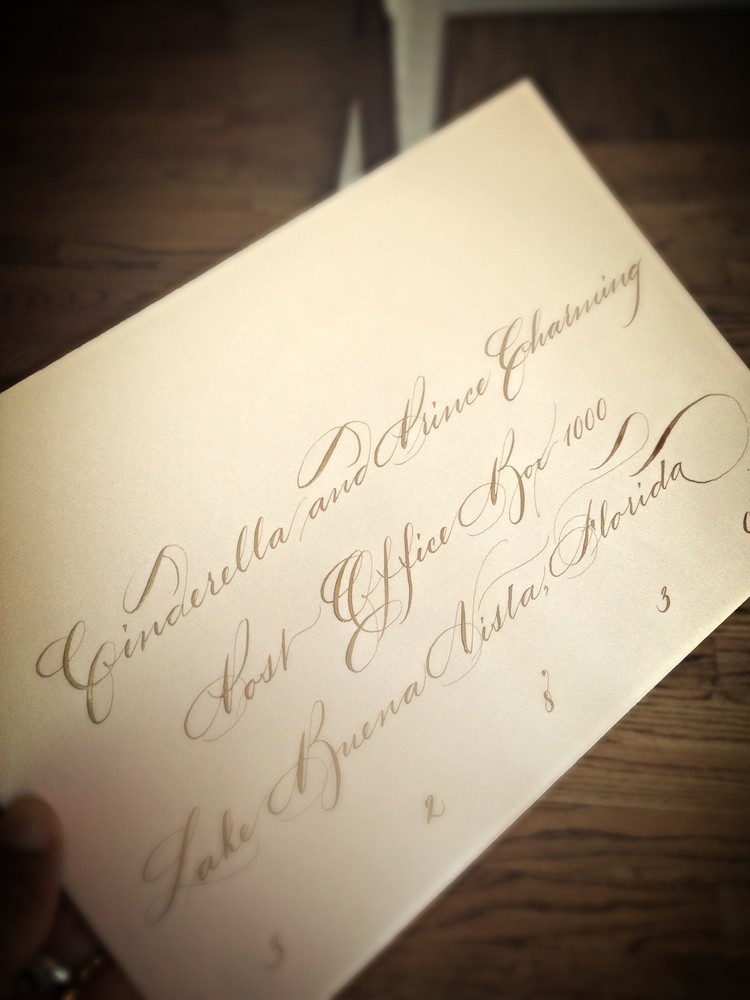 Cinderella and Prince Charming
Post Office Box 1000
Lake Buena Vista, Florida
3 2 8 3